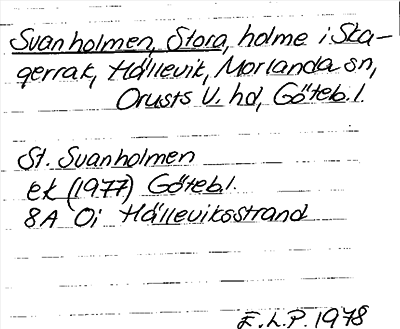 Svanholmen, Stora, holme i Ska-
gerrak, Hällevik, Morlanda sn,
Orusts V. hd, Göteb. l.
St. Svanholmen
ek (1977) Göteb l.
8A Oi Hälleviksstrand
E.L.P. 1978